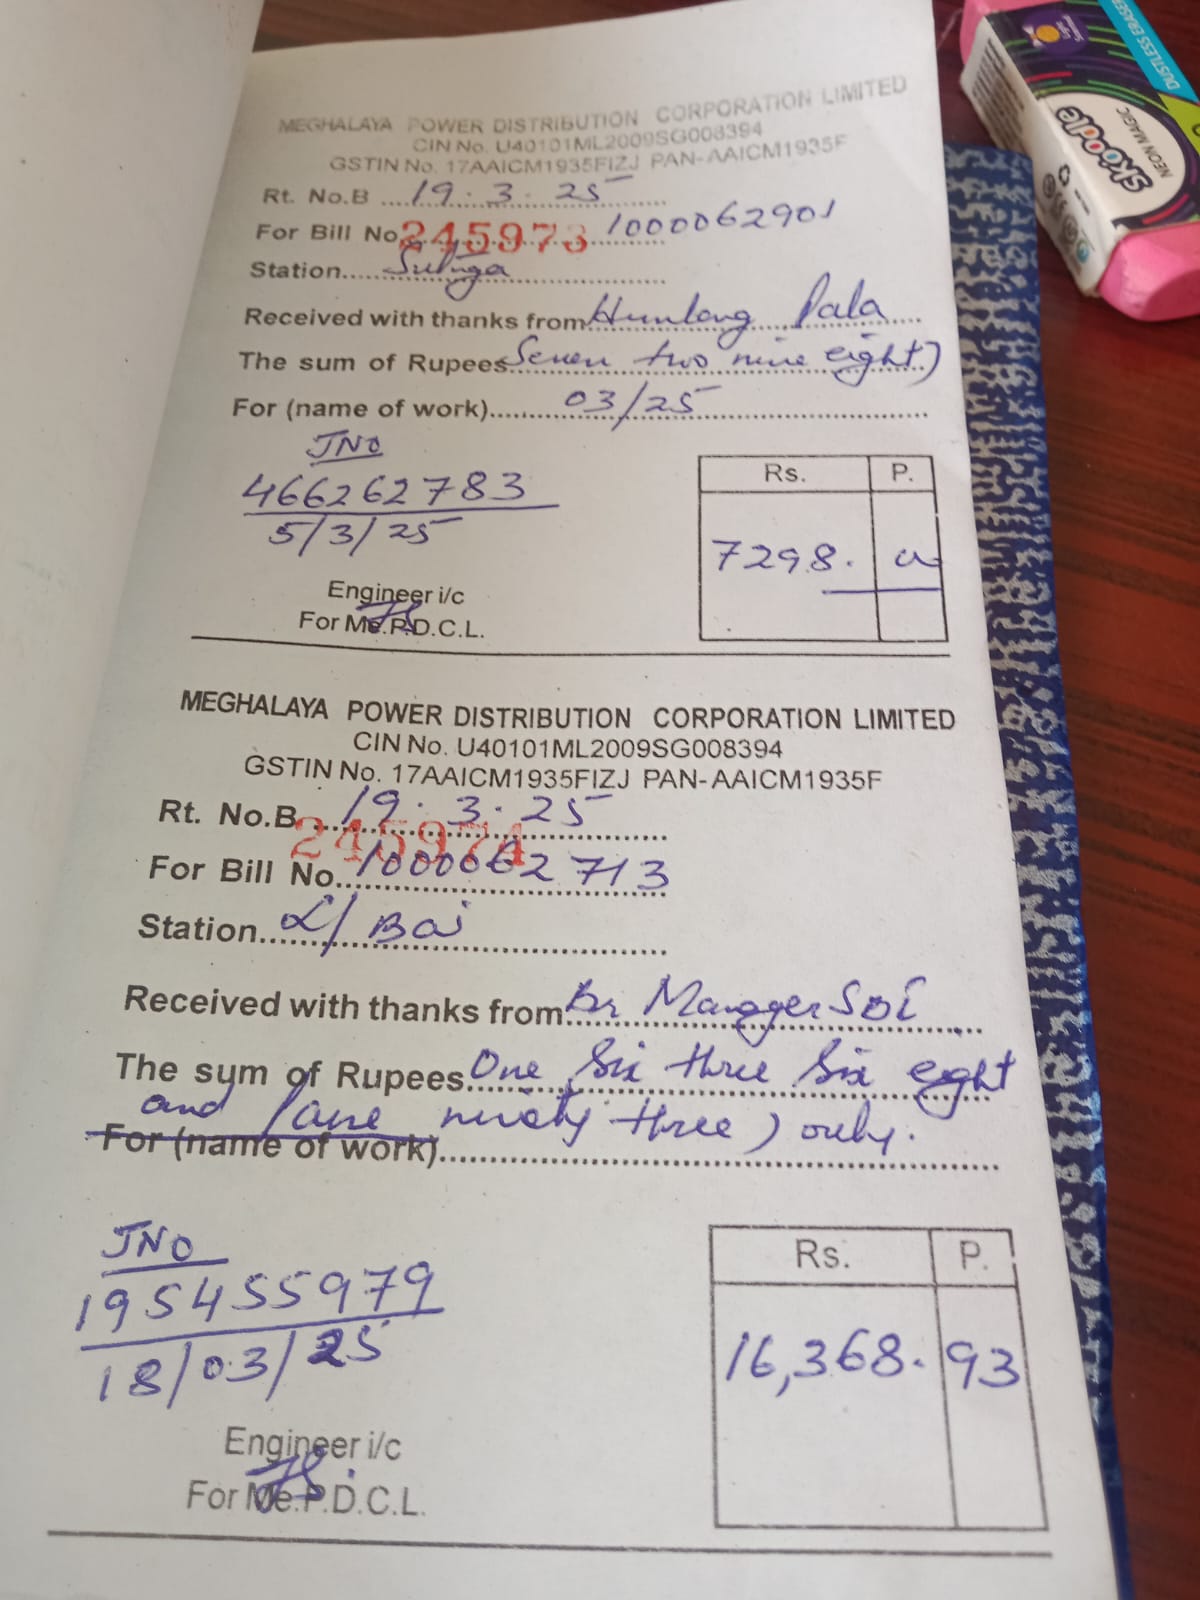 MEGHALAYA POWER DISTRIBUTION CORPORATION LIMITED
CIN No. U40101ML2009SG008394
GSTIN No. 17AAICM1935FIZJ PAN-AAICM1935F
Rt. No.B 19.3.25
For Bill No. 245973 1000062901
Station Sutnga
Received with thanks from Hunlang Pala
The sum of Rupees Seven two nine eight)
For (name of work) 03/25
JNO
466262783
5/3/25
Rs. P.
7298.
Engineer i/c
For Me.P.D.C.L.
MEGHALAYA POWER DISTRIBUTION CORPORATION LIMITED
CIN No. U40101ML2009SG008394
GSTIN No. 17AAICM1935FIZJ PAN-AAICM1935F
Rt. No.B 19.3.25
245974
For Bill No. 1000062713
Station L/Bai
Received with thanks from Br Manager SBI
The sum of Rupees One Six three Six eight
and Paise ninety three) only.
For (name of work)
JNO
195455979
18/03/25
Rs. P.
16,368. 93
Engineer i/c
For Me.P.D.C.L.
DUSTLESS ERASER
skoodle
NEON MAGIC